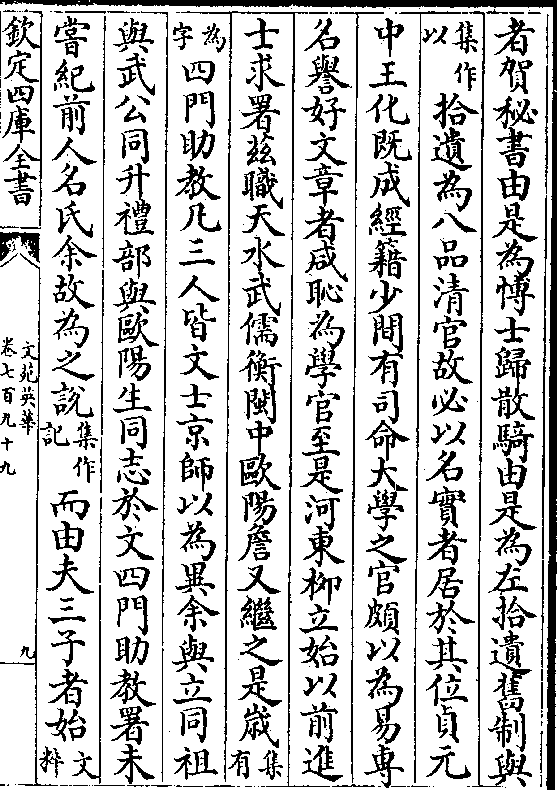 者賀秘書由是為博士歸散騎由是為左拾遺舊制與
集作以拾遺為八品清官故必以名實者居於其位貞元
中王化既成經籍少間有司命大學之官頗以為易專
名譽好文章者咸恥為學官至是河東柳立始以前進
士求署兹職天水武儒衡閩中歐陽詹又繼之是歲集有
為字四門助教凡三人皆文士京師以為異余與立同祖
與武公同升禮部與歐陽生同志於文四門助教署未
嘗紀前人名氏余故為之說集作記而由夫三子者始文粹
欽定四庫全書
文苑英華
卷七百九十九
九